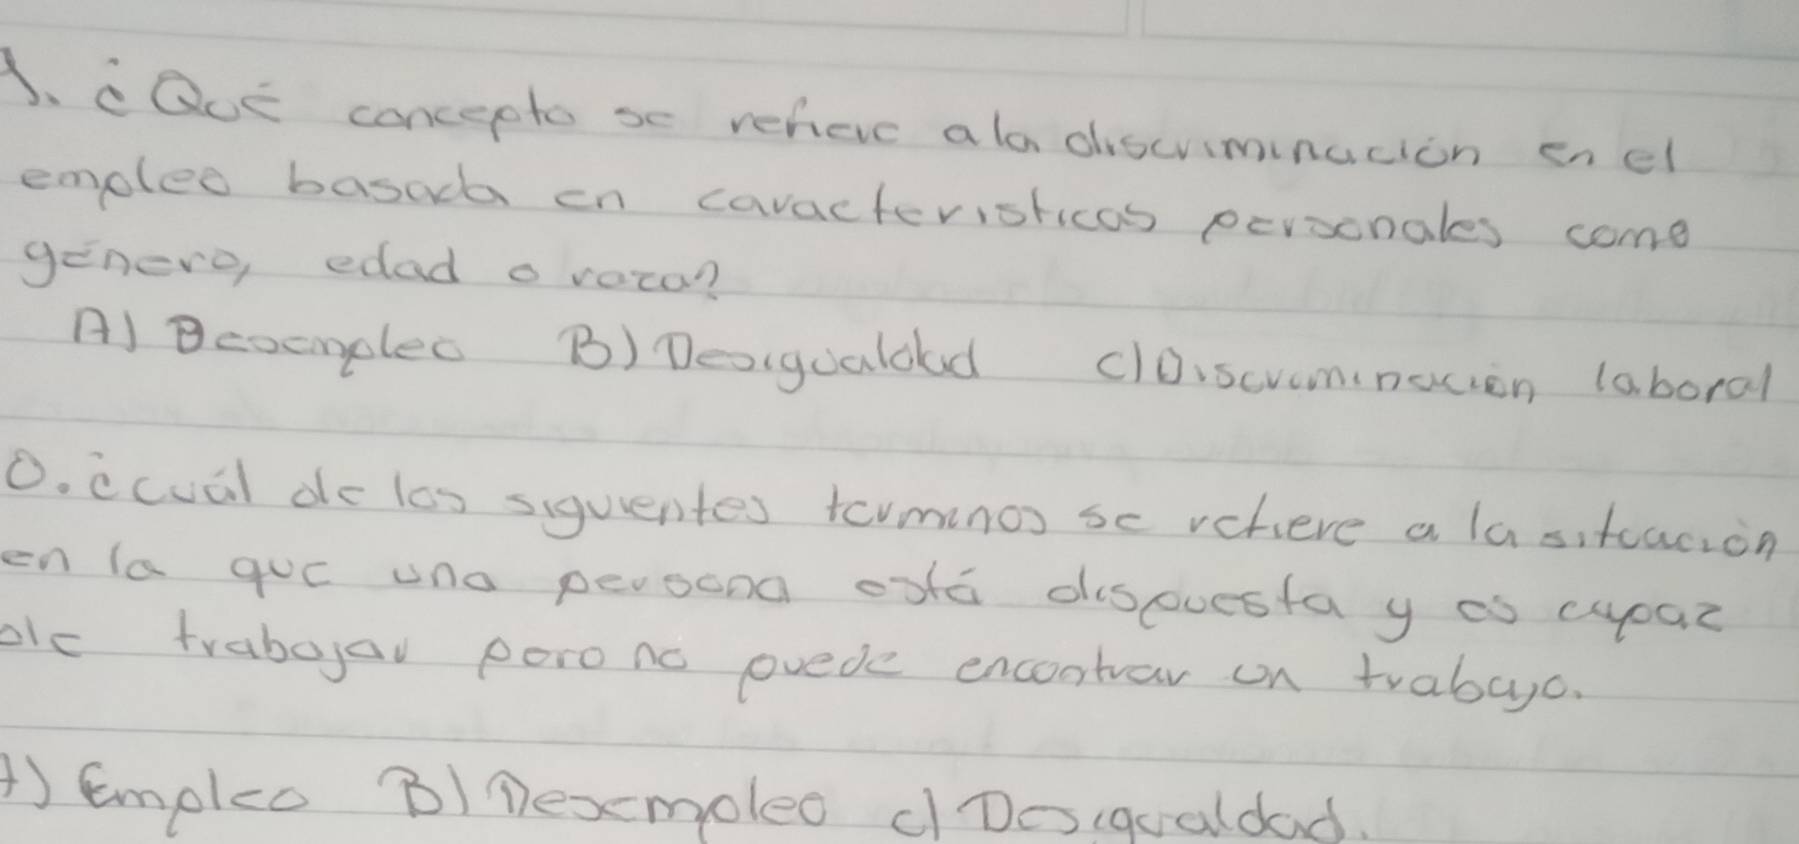 1. ¿Qué concepto se refiere a la discriminación en el
empleo basada en caracteristicas personales como
género, edad o raza?
A) Desempleo B) Desigualdad C) Discriminación laboral
0. ¿cuál de los siguientes terminos se refiere a la situación
en la que una persona está dispuesta y es capaz
de trabajar pero no puede encontrar un trabajo.
A) Empleo B) Desempleo c) Desigualdad.